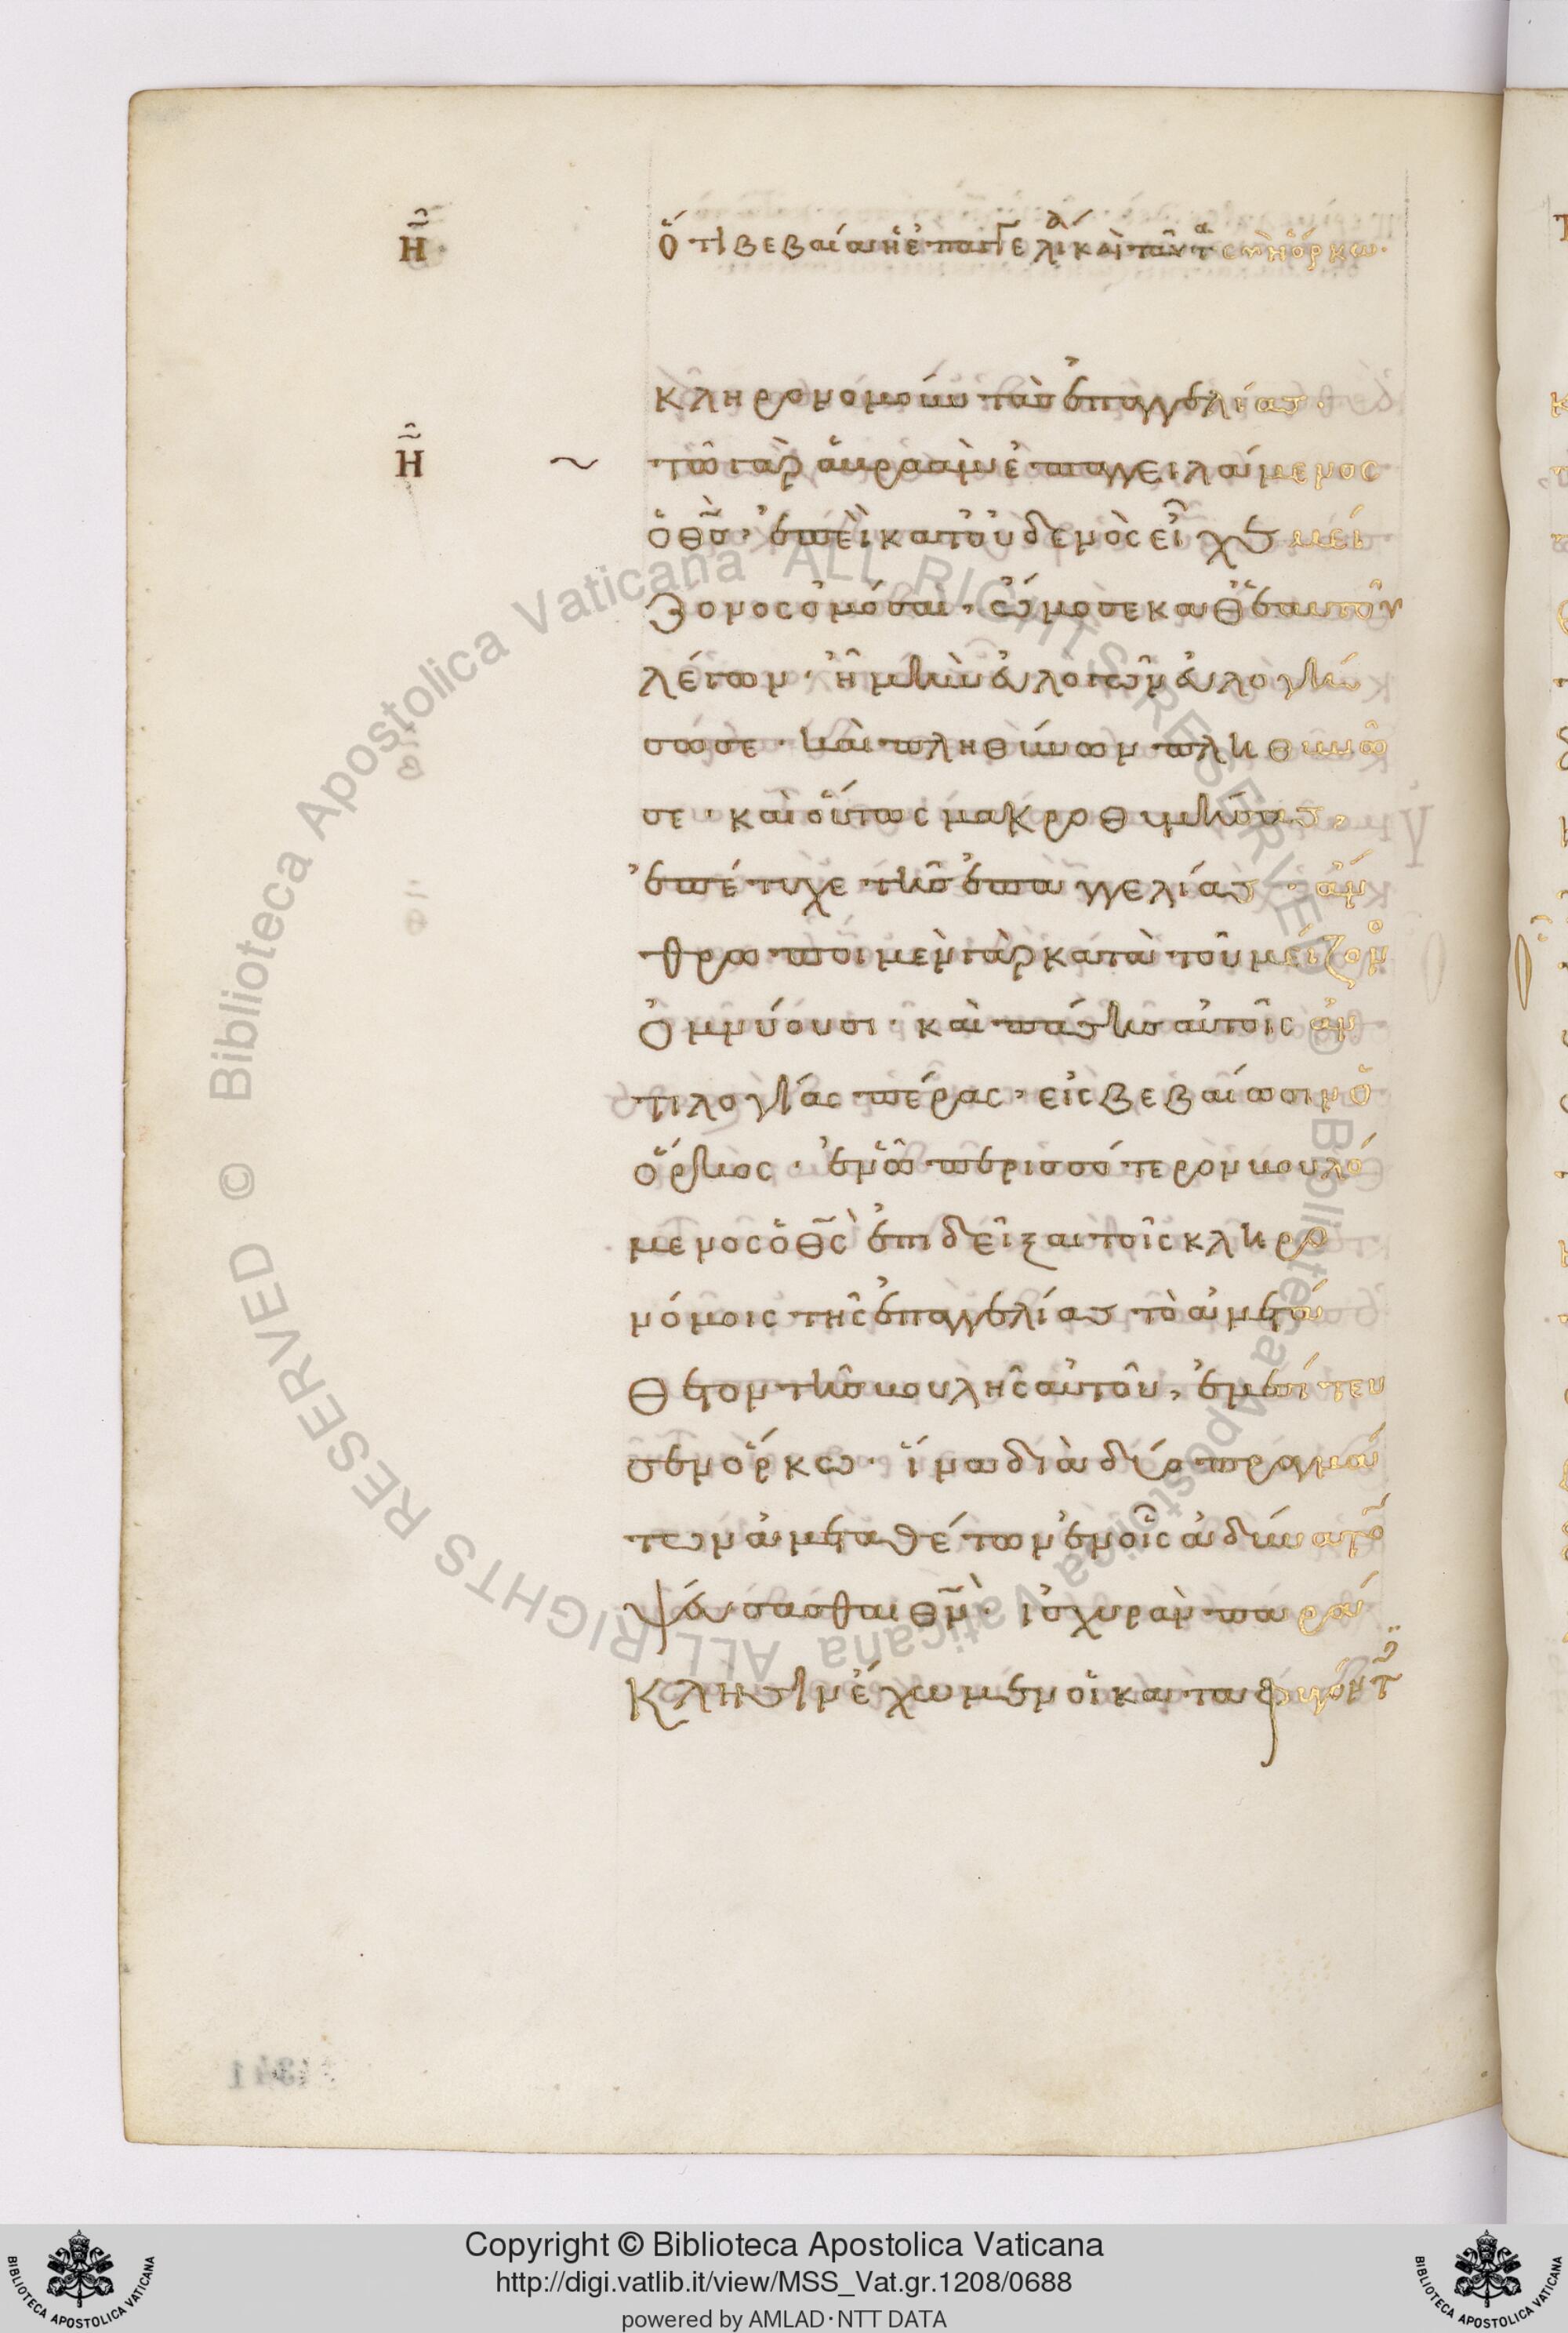 Η ὅτι βεβαία ἡ ἐπαγγελία καὶ ταῦτα σὺν ὅρκω·
κληρονομούντων τὰς ἐπαγγελίας·
Η ~ τῶ γὰρ ἀβραὰμ ἐπαγγειλάμενος
ὁ θ̅ς̅· ἐπεὶ κατ' οὐδενὸς εἶχε μεί
ζονος ὀμόσαι, ὤμοσε καθ' ἑαυτοῦ
λέγων· ἦ μὴν εὐλογῶν εὐλογή
σω σε· καὶ πληθύνων πληθυνῶ
σε· καὶ οὕτως μακροθυμήσας,
ἐπέτυχε τῆς ἐπαγγελίας· ἄν
θρωποι μὲν γὰρ κατὰ τοῦ μείζονος
ὀμνύουσι· καὶ πάσης αὐτοῖς ἀν
τιλογίας πέρας, εἰς βεβαίωσιν ὁ
ὅρκος· ἐν ᾧ περισσότερον βουλό
μενος ὁ θ̅ς̅ ἐπιδεῖξαι τοῖς κληρο
νόμοις τῆς ἐπαγγελίας τὸ ἀμετά
θετον τῆς βουλῆς αὐτοῦ, ἐμεσίτευ
σεν ὅρκω· ἵνα διὰ δύο πραγμά
των ἀμεταθέτων ἐν οἷς ἀδύνατον
ψεύσασθαι θ̅ν̅· ἰσχυρὰν παρά
κλησιν ἔχωμεν οἱ καταφυγόντες
1341
© Biblioteca Apostolica Vaticana ALL RIGHTS RESERVED
© Biblioteca Apostolica Vaticana ALL RIGHTS RESERVED
Copyright © Biblioteca Apostolica Vaticana
http://digi.vatlib.it/view/MSS_Vat.gr.1208/0688
powered by AMLAD·NTT DATA
BIBLIOTECA APOSTOLICA VATICANA
BIBLIOTECA APOSTOLICA VATICANA